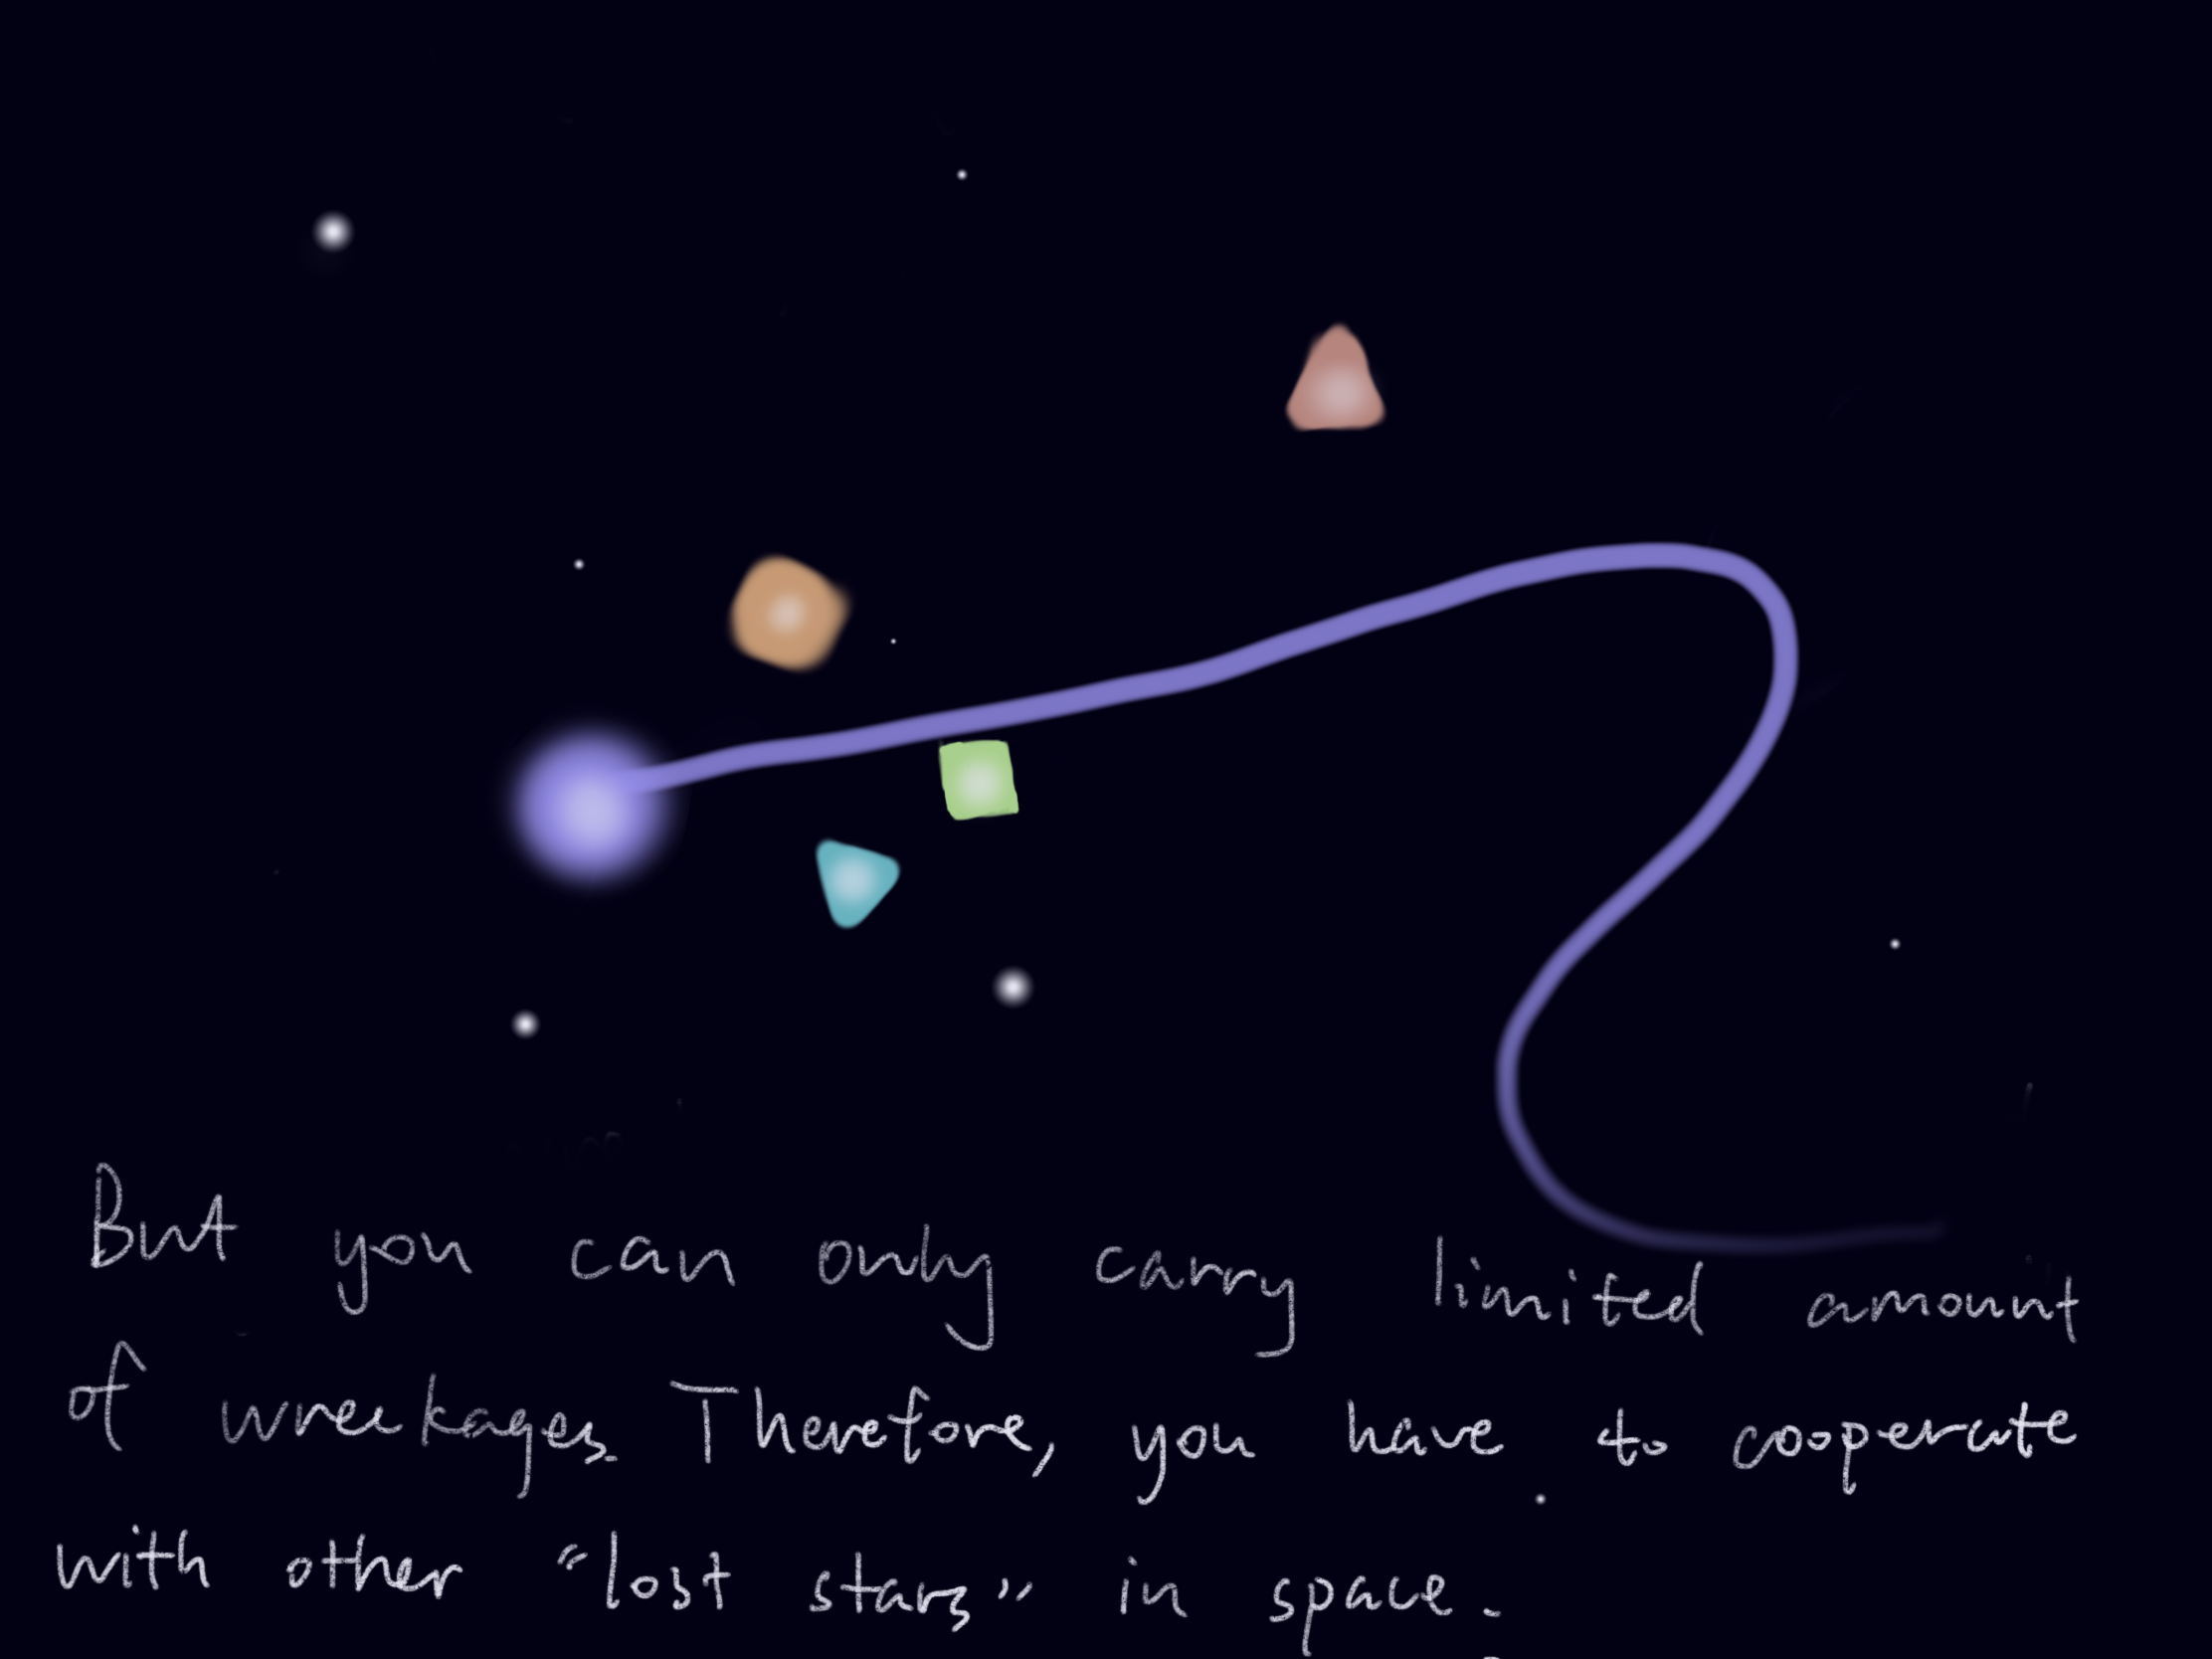 But you can only carry limited amount
of wreckages. Therefore, you have to cooperate
with other "lost stars" in space.